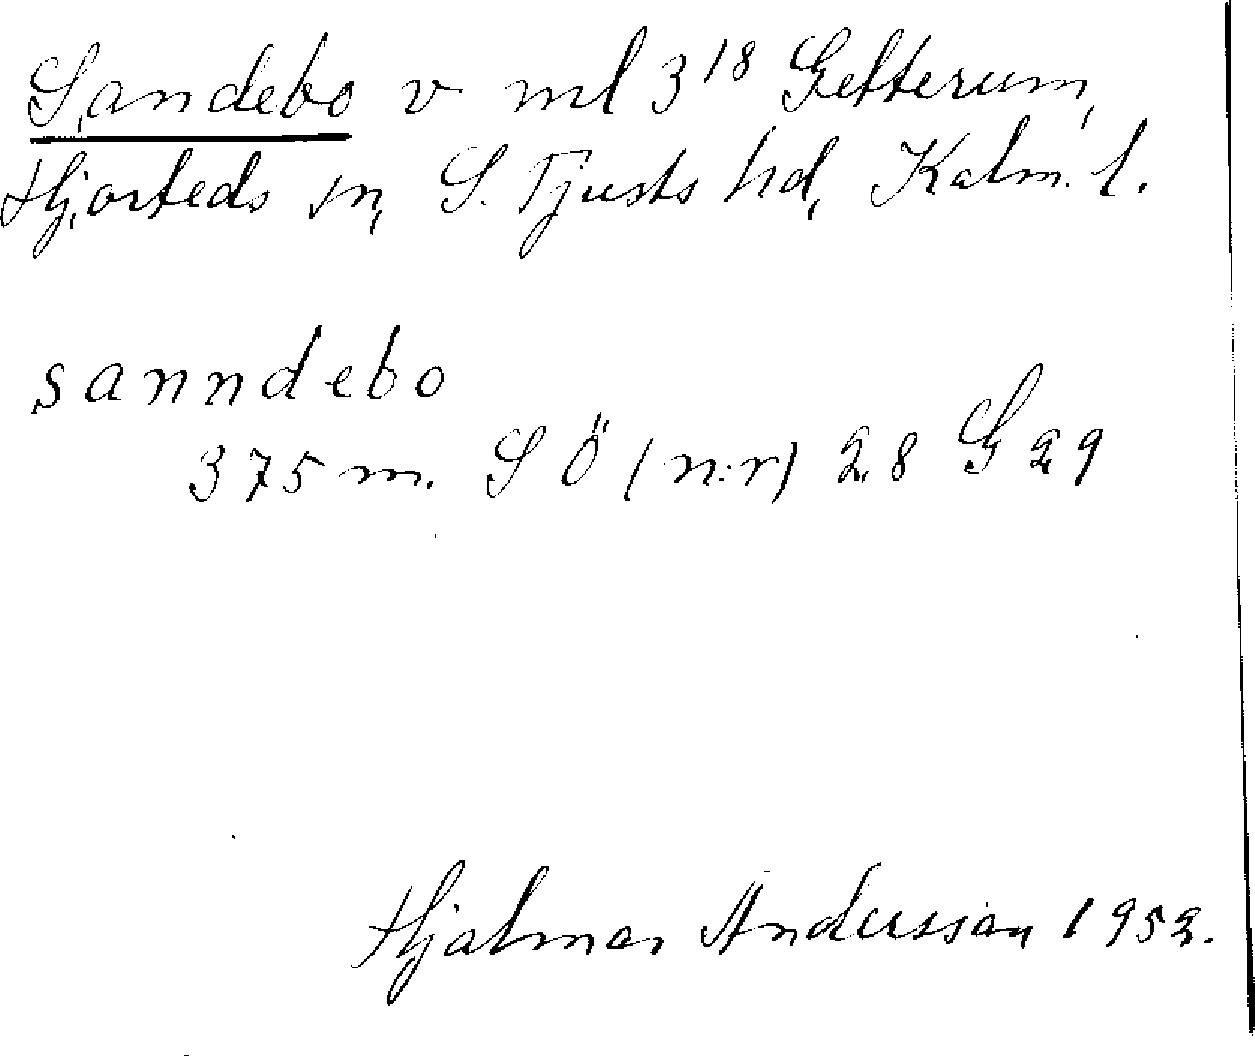 Sandebo v ml 3¹⁸ Getterum,
Hjorteds sn, S. Tjusts hd, Kalm. l.
sanndebo
375 m. S Ö (n:r) 28 G 29
Hjalmar Andersson 1952.